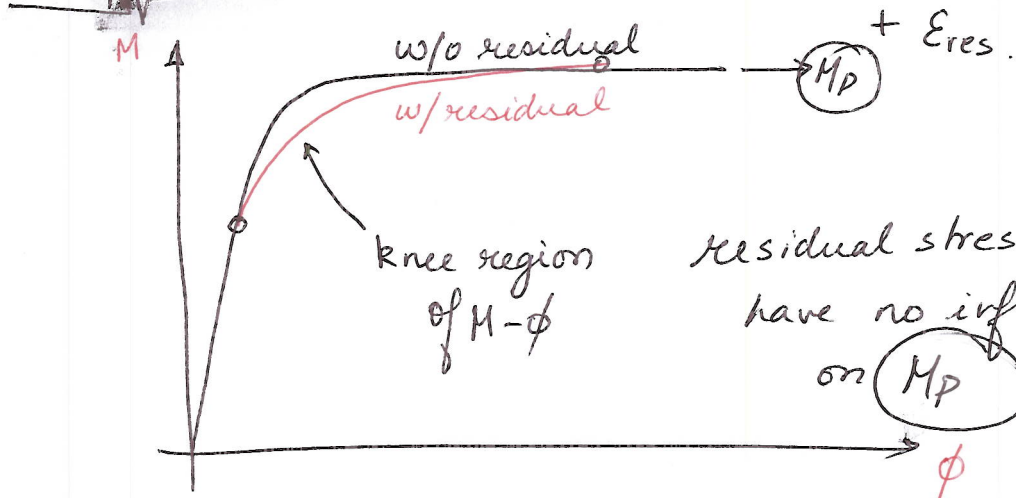 M
w/o residual
+ εres.
Mp
w/residual
knee region
of M-ϕ
residual stres
have no inf
on Mp
ϕ